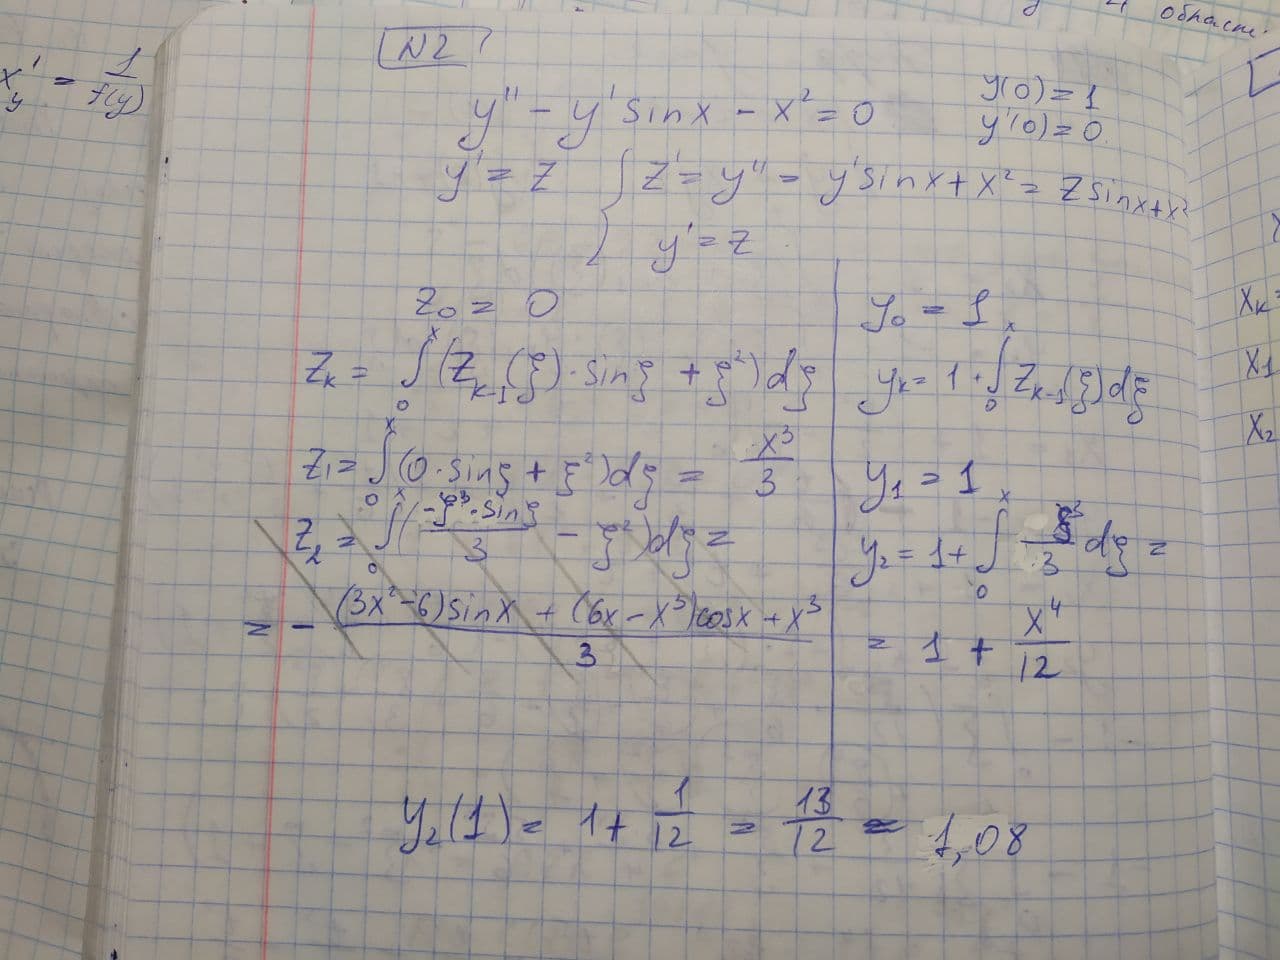 области
x'_y = 1/f(y)
N2
y'' - y' sin x - x² = 0
y(0) = 1
y'(0) = 0.
y' = z
{ z' = y'' = y' sin x + x² = z sin x + x²
y' = z
z₀ = 0
z_k = ∫₀ˣ (z_{k-1}(ξ)·sin ξ + ξ²) dξ
z₁ = ∫₀ˣ (0·sin ξ + ξ²) dξ = x³/3
z₂ = ∫₀ˣ (-ξ³·sin ξ/3 - ξ²) dξ =
= - ((3x² - 6) sin x + (6x - x³) cos x + x³)/3
y₀ = 1
y_k = 1 + ∫₀ˣ z_{k-1}(ξ) dξ
y₁ = 1
y₂ = 1 + ∫₀ˣ ξ³/3 dξ =
= 1 + x⁴/12
y₂(1) = 1 + 1/12 = 13/12 = 1,08
x_k =
x₁
x₂